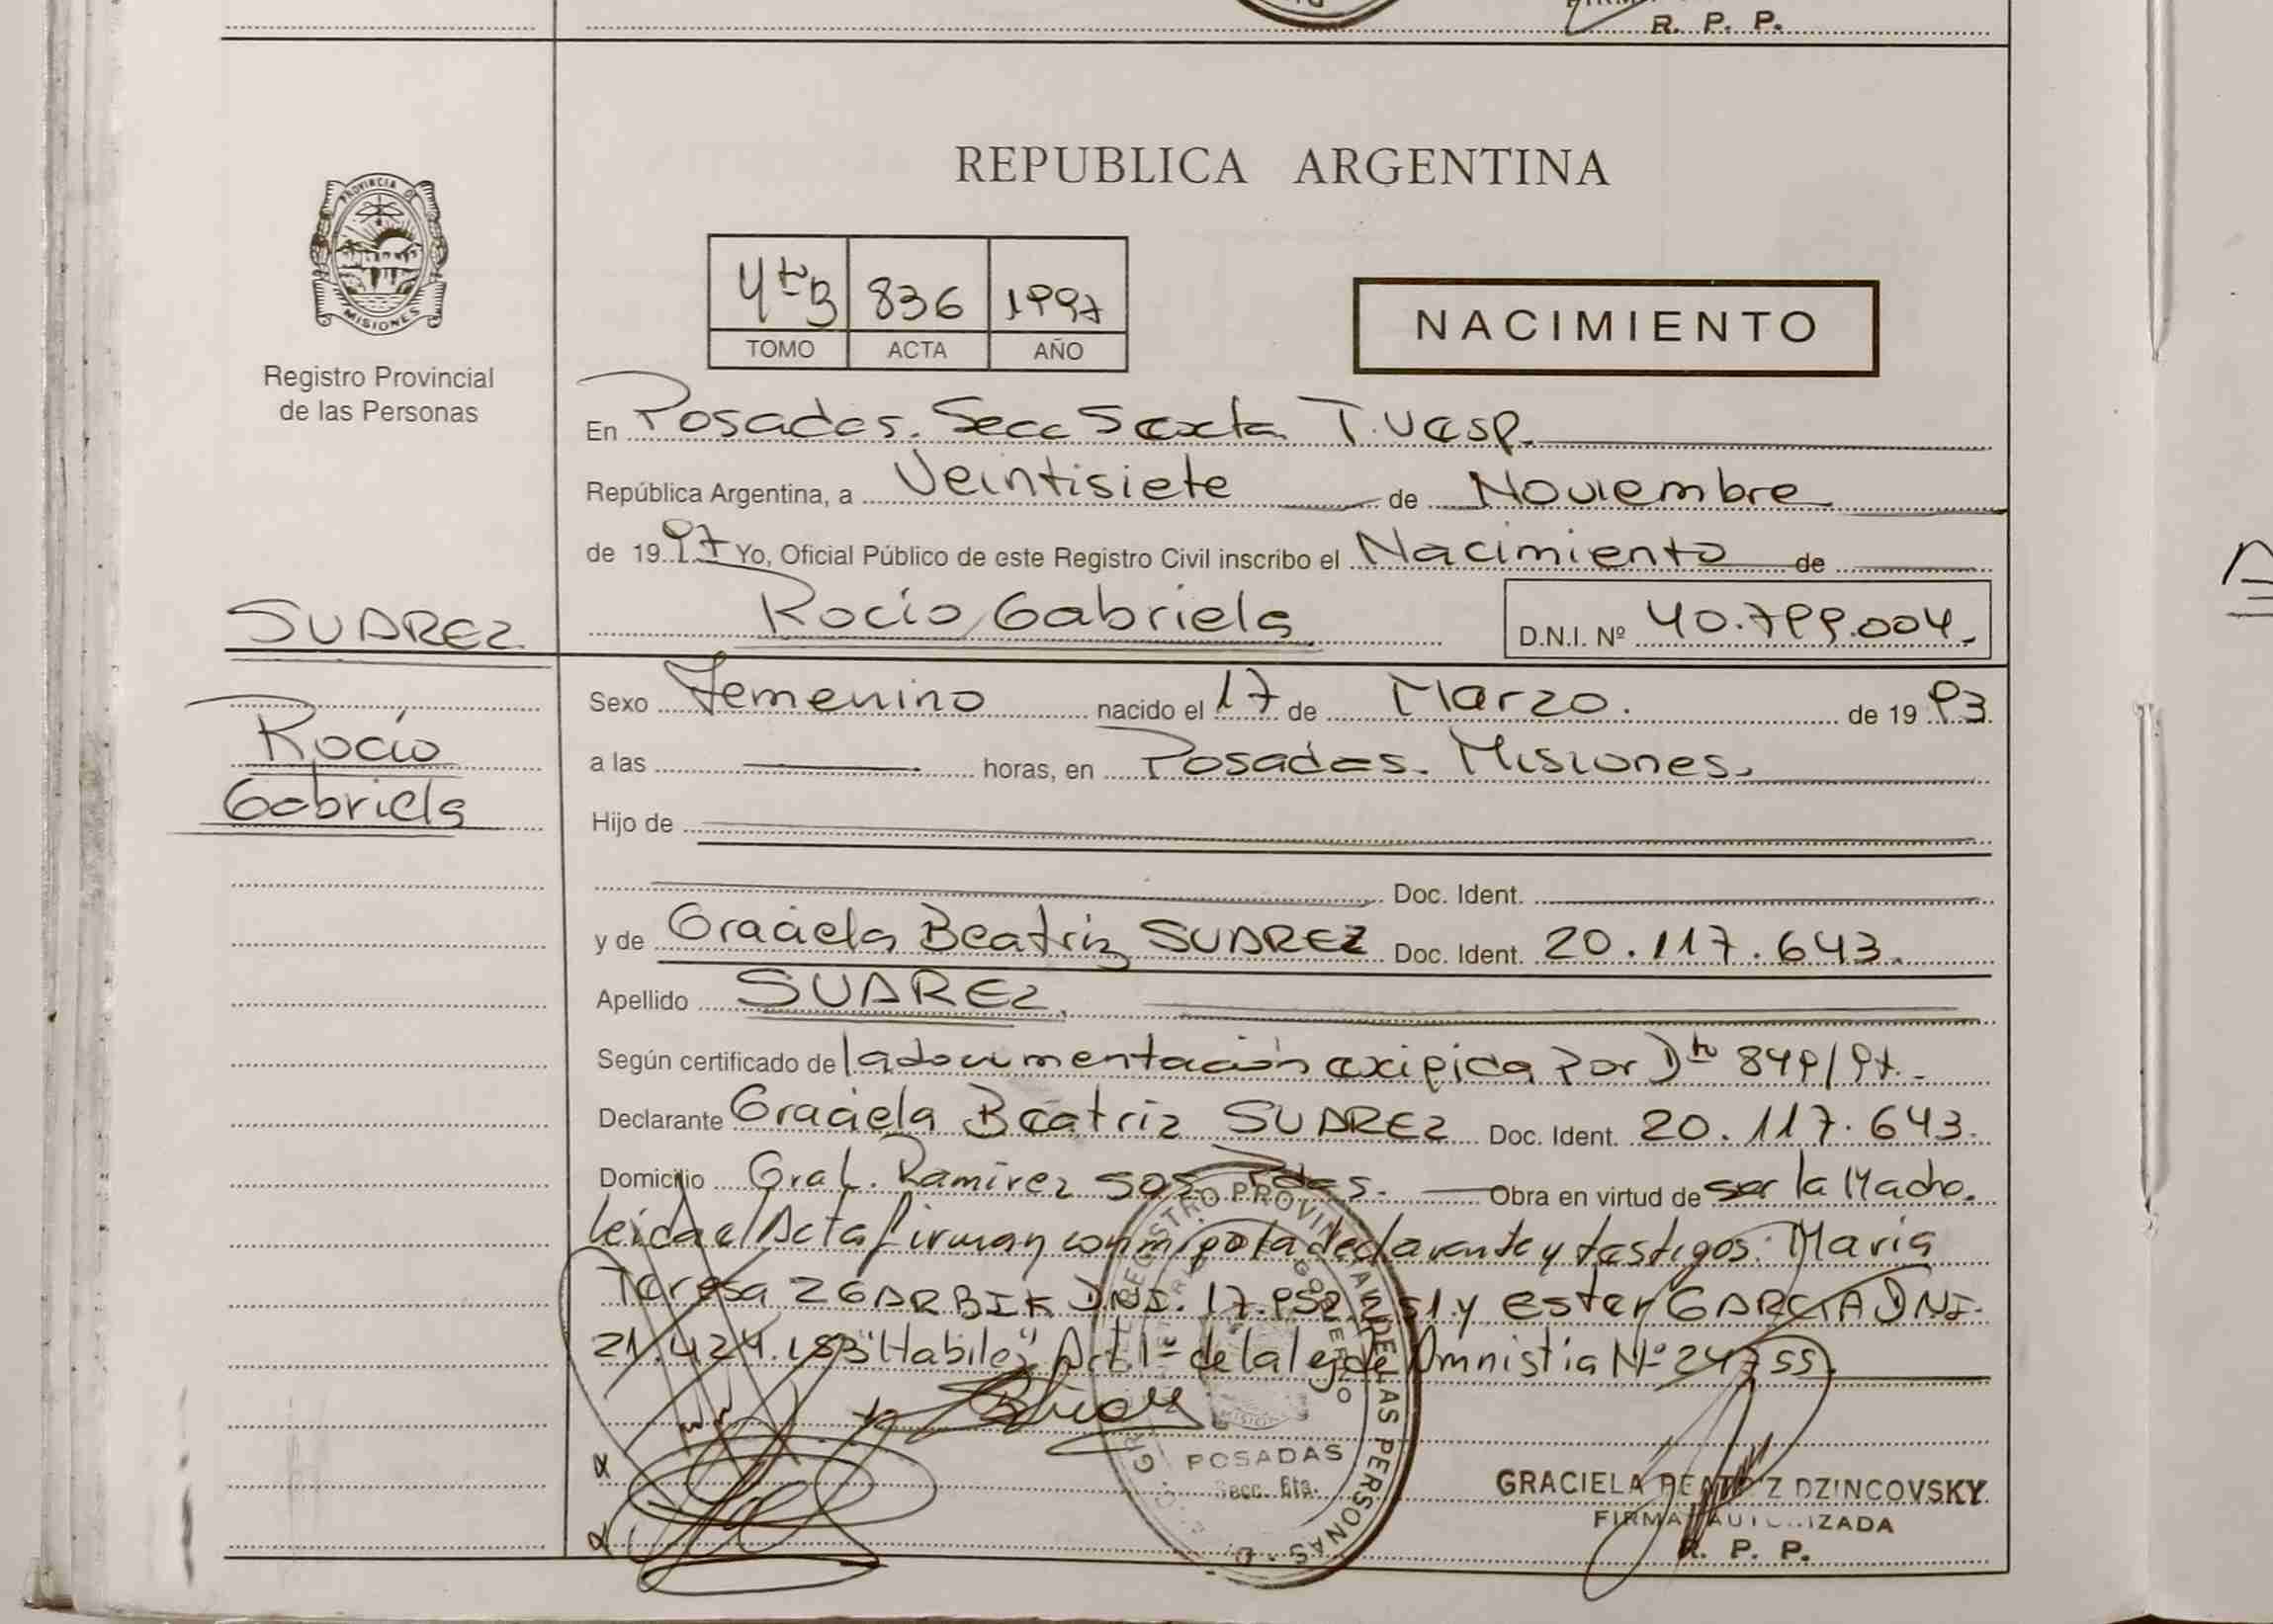 R. P. P.
REPUBLICA ARGENTINA
PROVINCIA DE
MISIONES
Registro Provincial
de las Personas
4to B 836 1997
TOMO ACTA AÑO
NACIMIENTO
En Posadas. Secc Sexta T. V Esp.
República Argentina, a Veintisiete de Noviembre
de 1997 Yo, Oficial Público de este Registro Civil inscribo el Nacimiento de
Rocío Gabriela
D.N.I. Nº 40.799.004.
SUAREZ
Rocío
Gabriela
Sexo Femenino nacido el 17 de Marzo. de 1993
a las horas, en Posadas. Misiones.
Hijo de
Doc. Ident.
y de Graciela Beatriz SUAREZ Doc. Ident. 20.117.643.
Apellido SUAREZ
Según certificado de la documentación exigida por Dto 849/97.
Declarante Graciela Beatriz SUAREZ Doc. Ident. 20.117.643.
Domicilio Gral. Ramirez 505 Pdas. Obra en virtud de ser la Madre.
leida el Acta firman conmigo la declarante y testigos: María
Teresa ZGARBIK DNI. 17.952.251. y Ester GARCIA DNI.
21.424.183 "Habiles" Art. 1º de la ley de Amnistia Nº 24755.
REGISTRO PROVINCIAL DE LAS PERSONAS
GOBIERNO
MISIONES
POSADAS
Secc. 6ta.
GRACIELA BEATRIZ DZINCOVSKY
FIRMA AUTORIZADA
R. P. P.